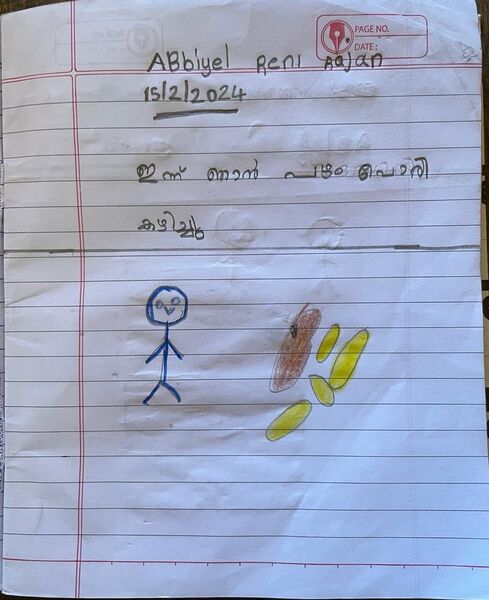 PAGE NO.
DATE:
ABbiyel Reni Rajan
15/2/2024
ഇന്ന് ഞാൻ പഴം പൊരി
കഴിച്ചു